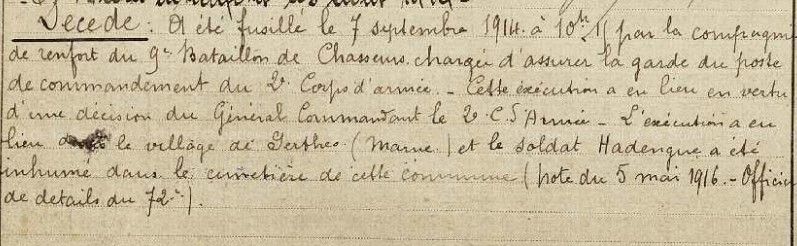 Décédé : A été fusillé le 7 septembre 1914 à 10h 11 par la compagnie
de renfort du 9e Bataillon de Chasseurs chargée d'assurer la garde du poste
de commandement du 2e Corps d'armée. - Cette exécution a eu lieu en vertu
d'une décision du Général Commandant le 2e C. d'Armée - L'exécution a eu
lieu le village de Perthes (Marne) et le soldat Hadengue a été
inhumé dans le cimetière de cette commune (note du 5 mai 1916. - Officier
de détails du 72e).